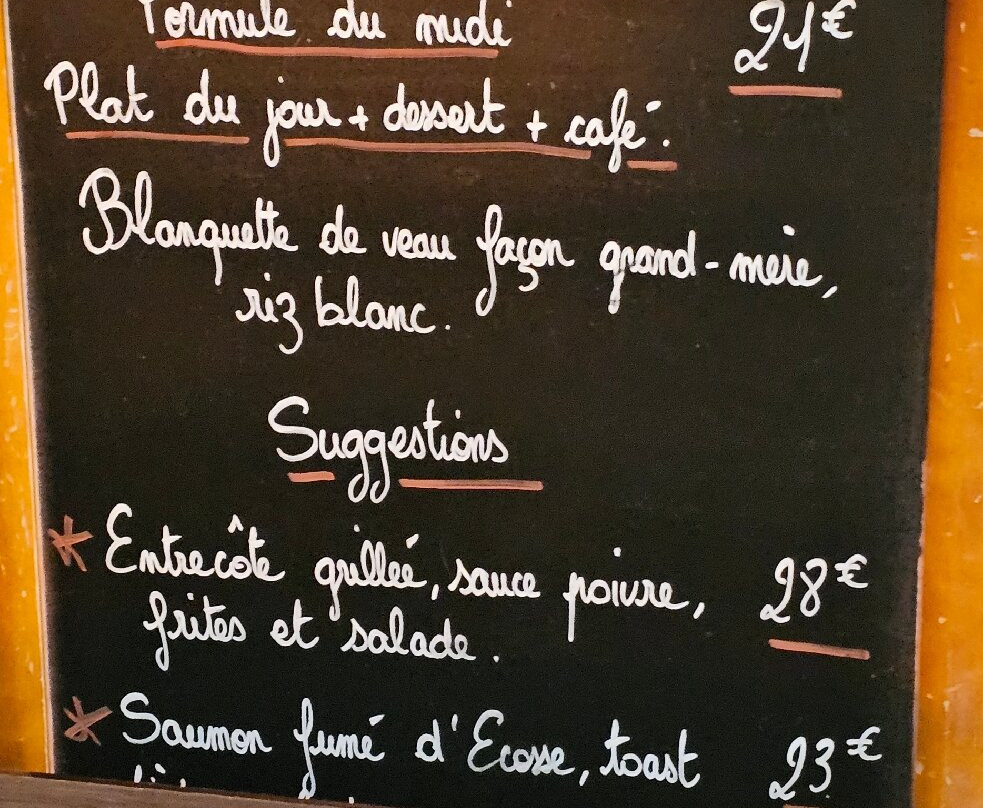 Formule du midi 21€
Plat du jour + dessert + café :
Blanquette de veau façon grand-mère,
riz blanc.
Suggestions
* Entrecôte grillée, sauce poivre, 28€
frites et salade.
* Saumon fumé d'Ecosse, toast 23€